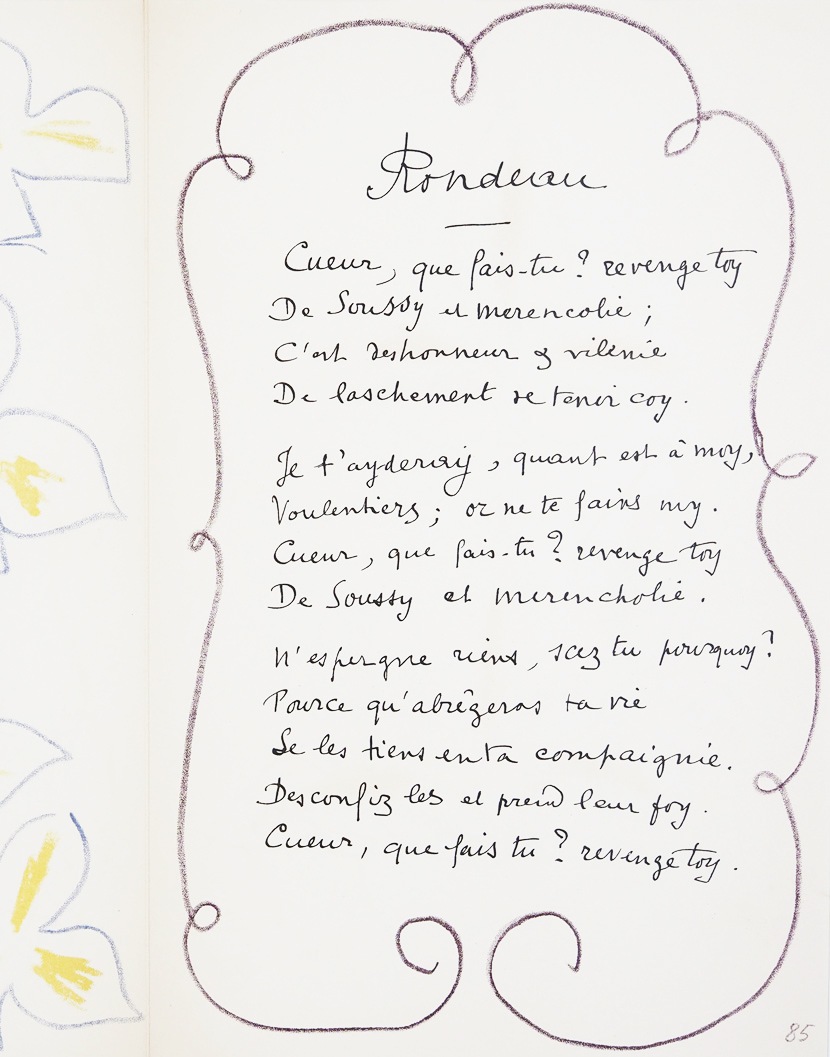 Rondeau
Cueur, que fais-tu? revenge toy
De Soussy et merencolie;
C'est deshonneur & vilenie
De laschement se tenir coy.
Je t'ayderay, quant est à moy,
Voulentiers; or ne te fains my.
Cueur, que fais-tu? revenge toy
De Soussy et merencholie.
N'espergne riens, scez tu pourquoy?
Pource qu'abrégeras ta vie
Se les tiens en ta compaignie.
Desconfiz les et prend leur foy.
Cueur, que fais tu? revenge toy.
85